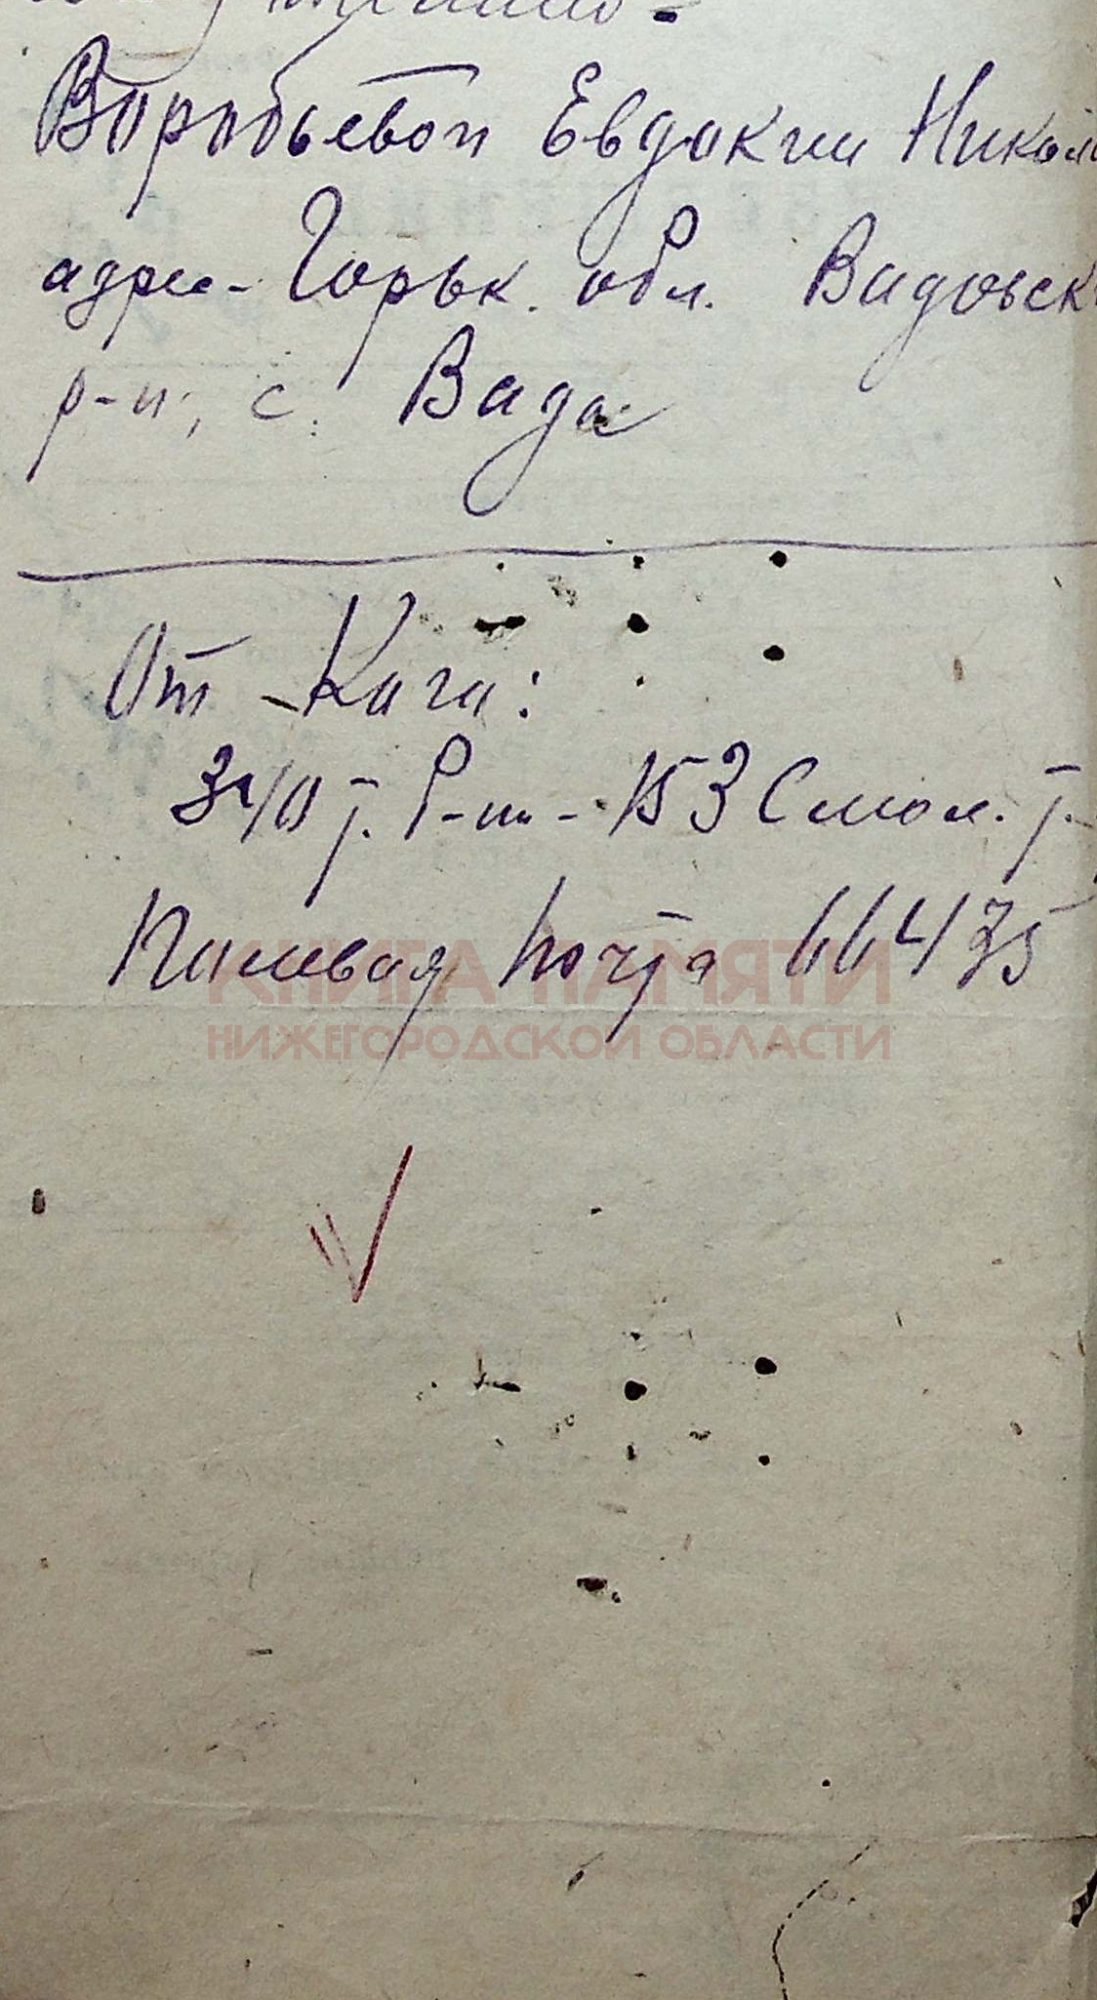 Воробьевой Евдокии Никол
адрес- Горьк. обл. Вадовск
р-н, с. Вада
От Кого:
Р-т - 153 Смол. Т.
Полевая почта 66475
КНИГА ПАМЯТИ
НИЖЕГОРОДСКОЙ ОБЛАСТИ